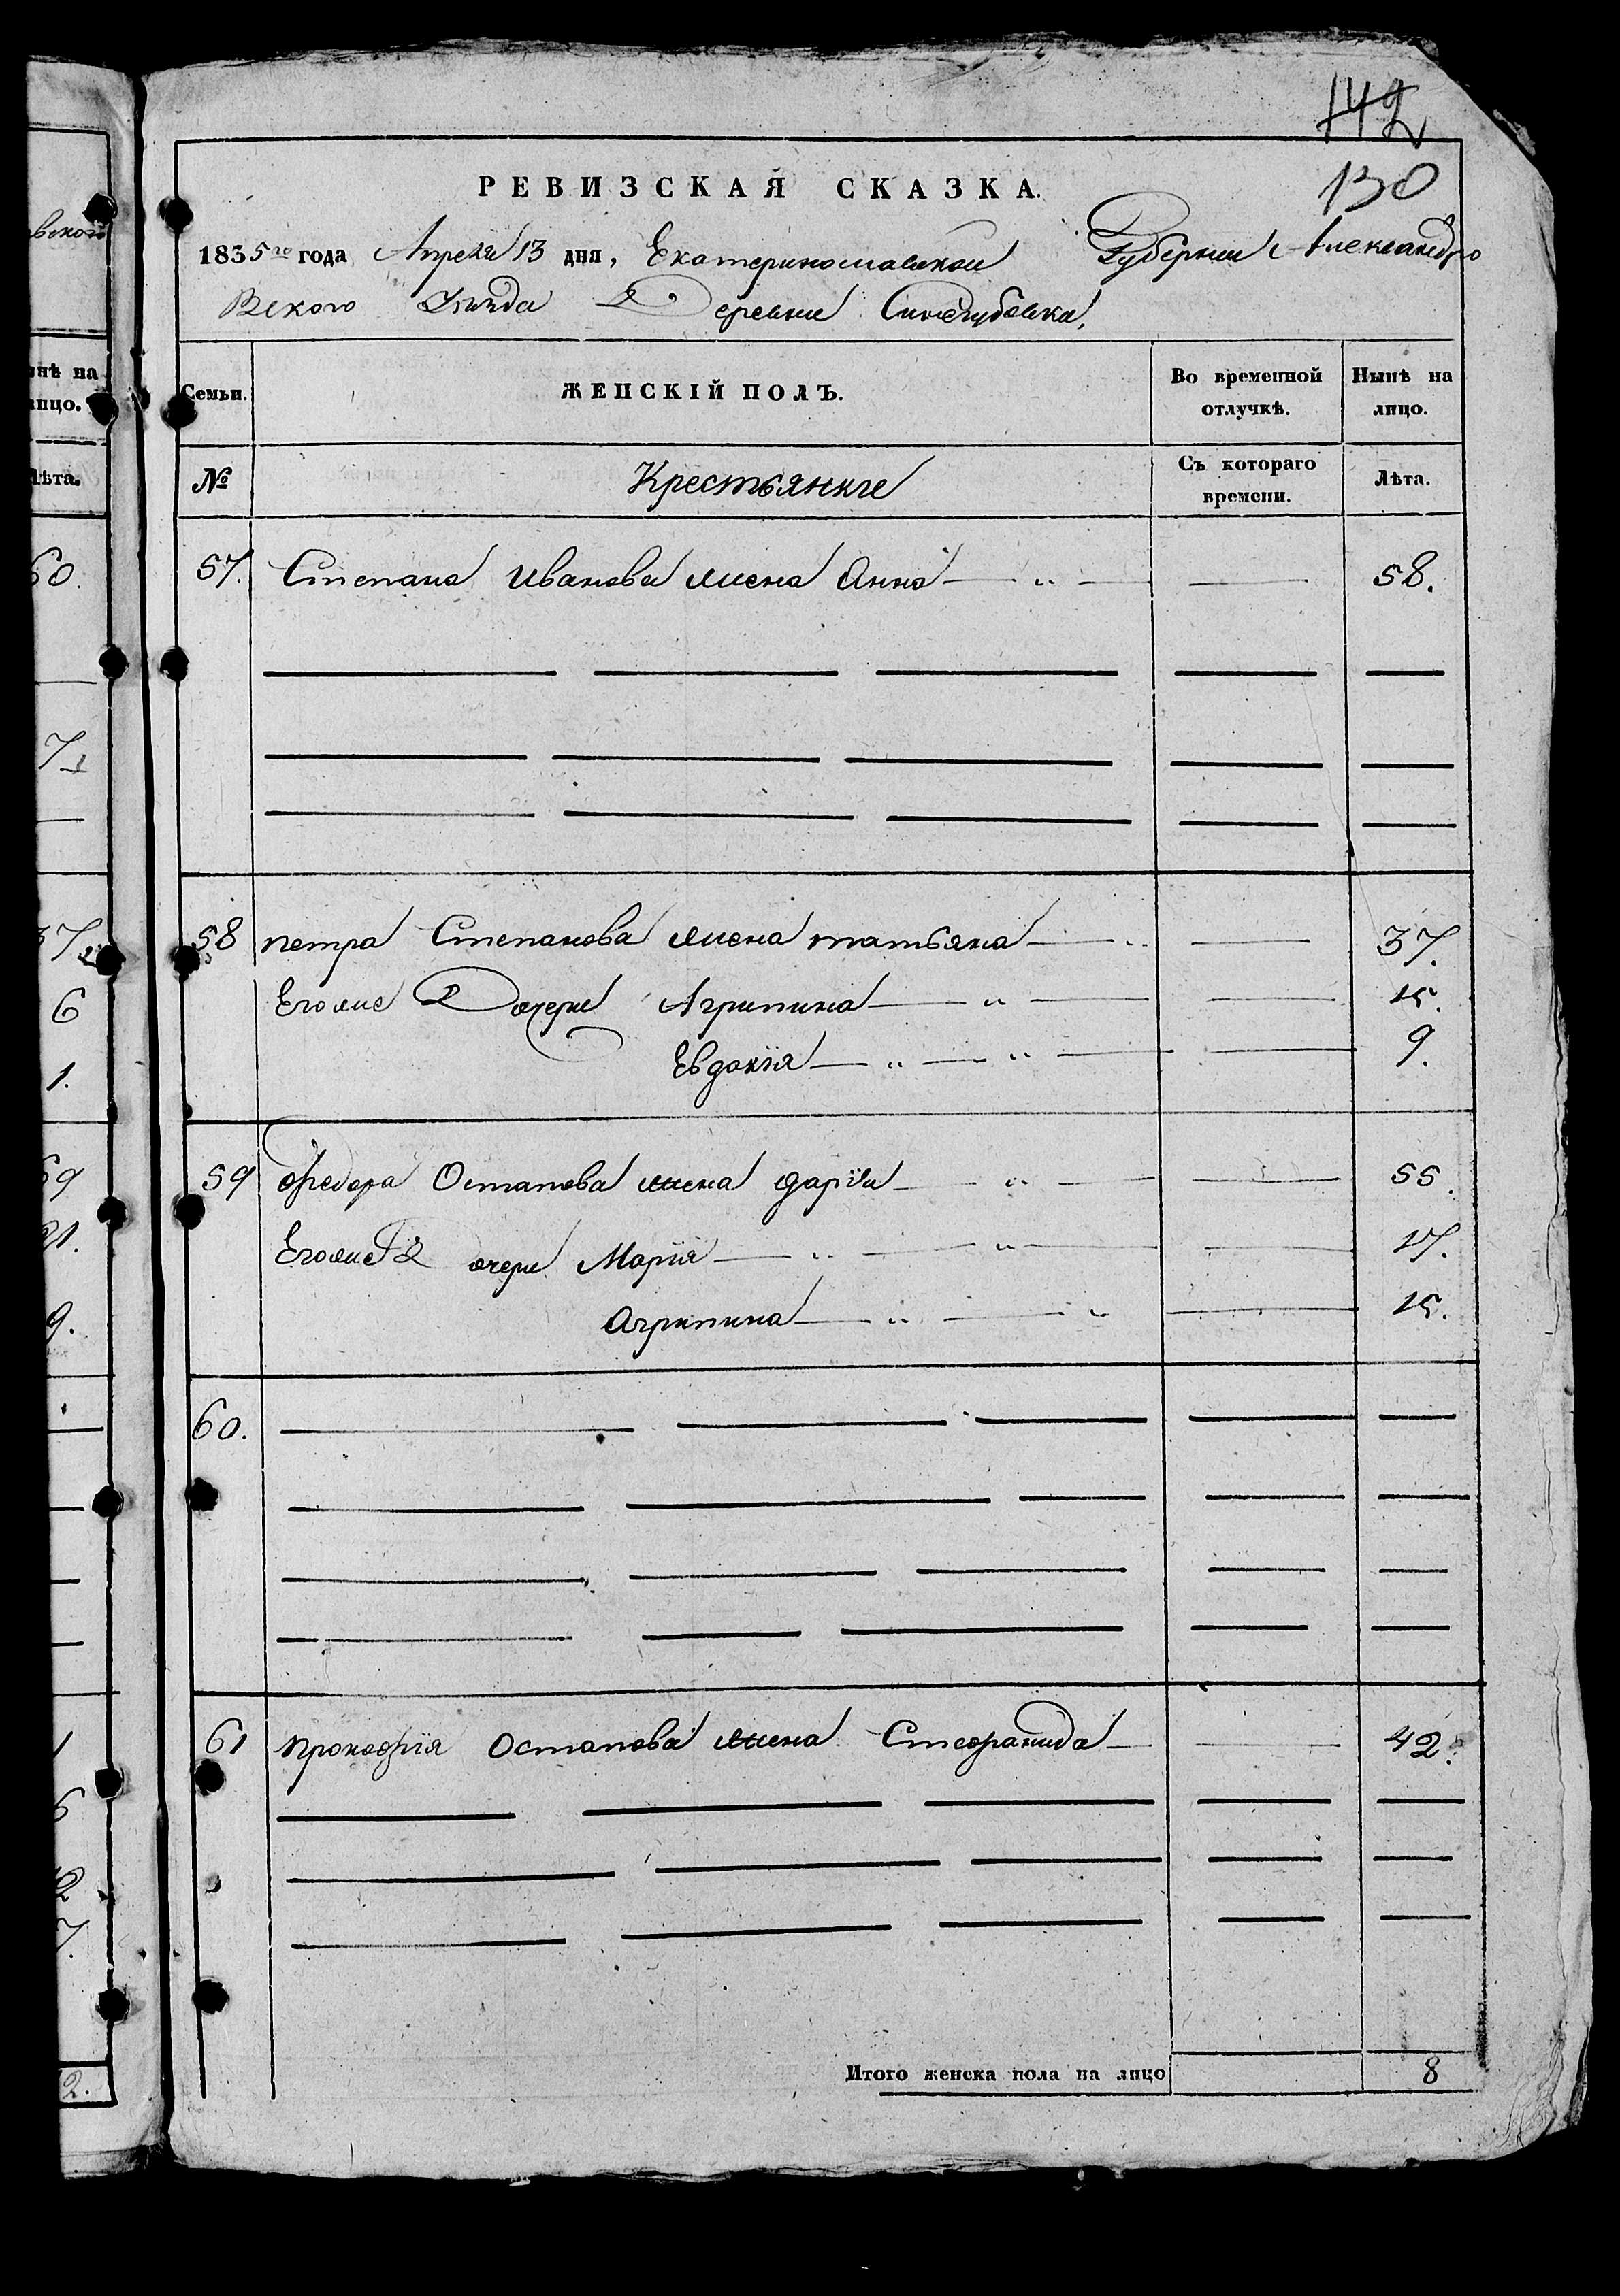 142
130
РЕВИЗСКАЯ СКАЗКА.
1835го года Апреля 13 дня, Екатеринославской Губернии Александро
Вского уезда Деревни Синегубовка,
Семьи. ЖЕНСКІЙ ПОЛЪ. Во временной отлучкѣ. Нынѣ на лицо.
№ Крестьянкiе Съ котораго времени. Лѣта.
57. Степана иванова жена Анна 58.
58 петра Степанова жена татьяна 37.
Егоже Дочери Агрипина 15.
Евдокiя 9.
59 федора Остапова жена дарiя 55.
Егоже Дочери Марiя 17.
Агрипина 15.
60.
61 прокофiя Остапова жена Стефанида 42.
Итого женска пола на лицо 8